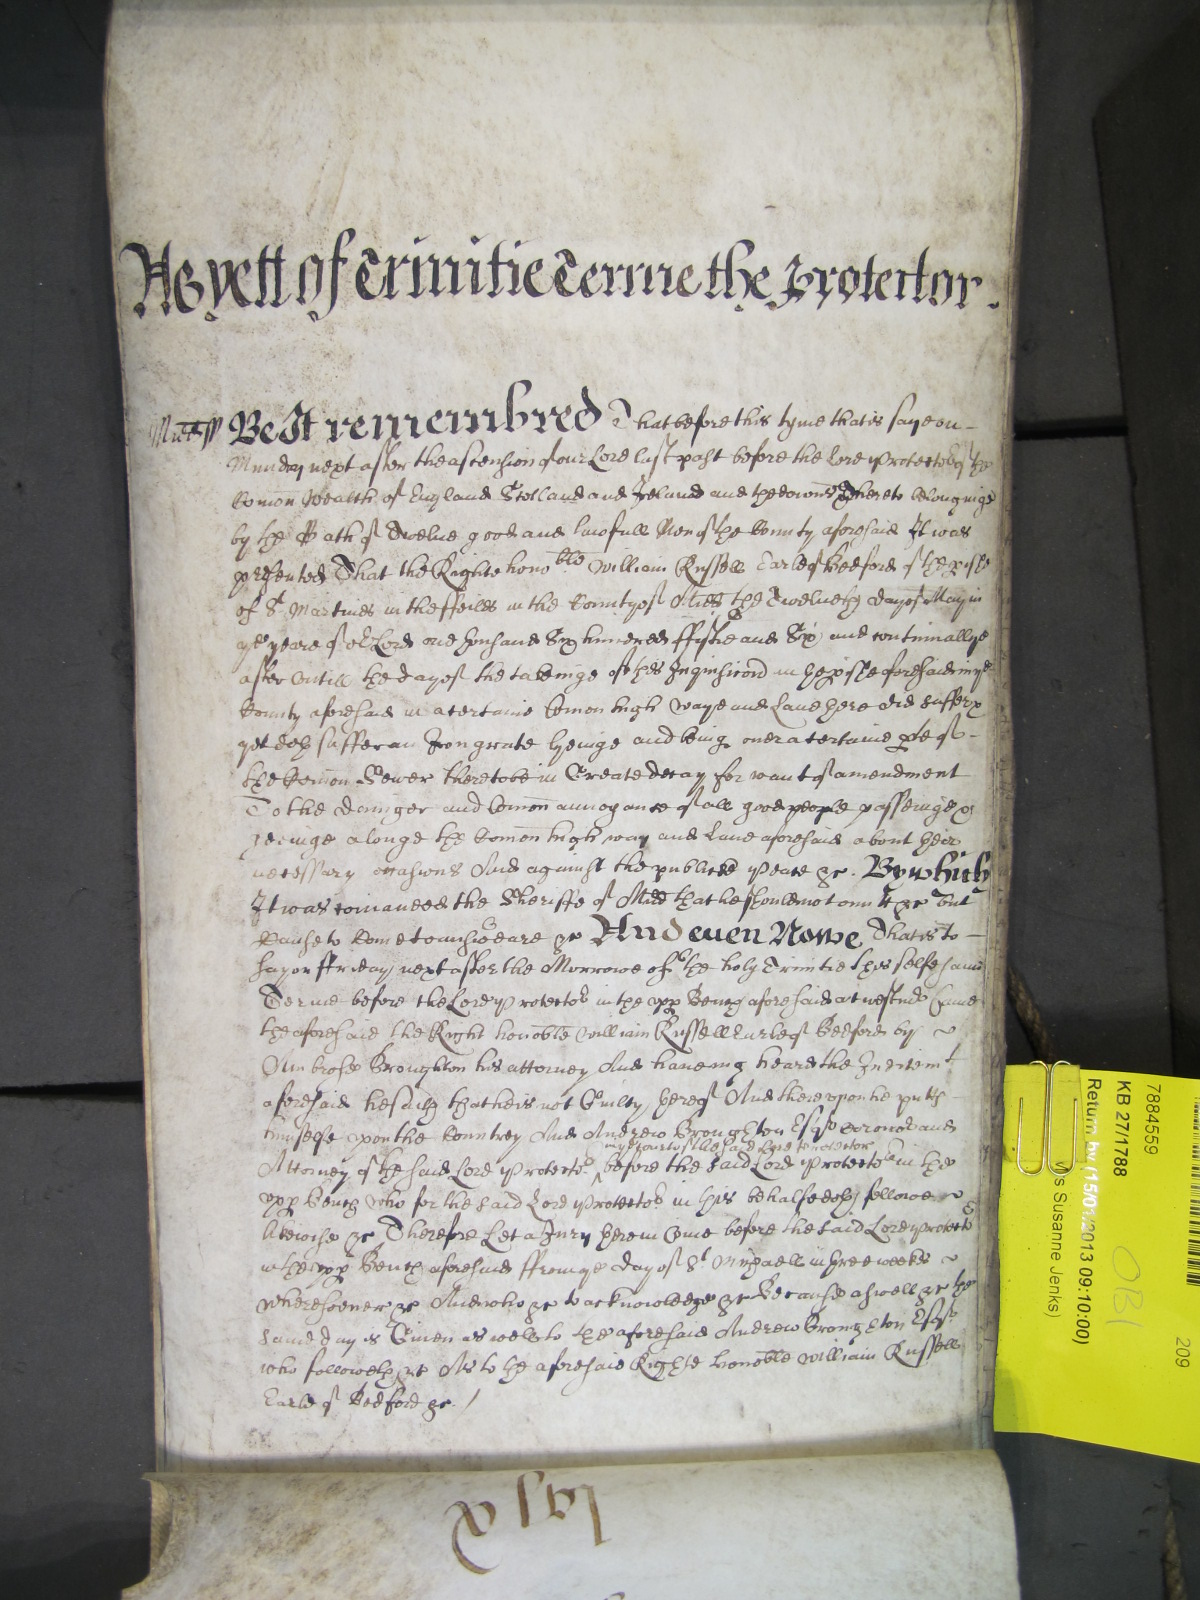 As yett of Trinitie Terme the Protector.
Midds Be It remembred That before this tyme that is say on
Munday next after the ascension of our Lord last past before the Lord Protector of the
Comon Wealth of England Scotland and Ireland and the dominions thereto belonginge
by the Oath of Twelve good and lawfull Men of the County aforesaid It was
presented That the Righte hono ble William Russell Earle of Bedford of the p ishe
of St. Martines in the ffeilds in the County of Midds the Twelveth day of May in
ye yeare of or Lord one thousand Six hundred ffyftie and Six and continnallye
after untill the day of the takeinge of this Inquisicon in the p ishe aforesaid in ye
County aforesaid in a certaine Comon high waye and Lane there did suffer &
yet doth suffer an Iron grate lyeinge and being over a certaine p te of
the Comon Sewer there to be in Create decay for want of amendment
To the daunger and Comon annoyance of all good people passeinge &
goeinge alonge the Comon high way and Lane aforesaid about their
necessary occasions And against the publicke peace &c. By which
It was comanded the Sheriffe of Midd that he should not omitt &c but
Cause to Come to answeare &c And even Nowe That is to
say on ffryday next after the Morrowe of the holy Trinitie this selfe same
Terme before the Lord Protector in the upp Bench aforesaid at Westmr Came
the aforesaid the Right honoble William Russell Earle of Bedford by
Ambrose Broughton his attorney And haveing heard the Indictmt
aforesaid he saith that he is not Guilty thereof And thereupon he putts
himselfe upon the Countrey And Andrew Broughton Esqr Coronor and
in the Court of the said Lord Protector
Attorney of the said Lord Protector before the said Lord Protector in the
upp Bench who for the said Lord Protector in this behalfe doth followe
likewise &c Therefore Let a Jury therein Come before the said Lord Protector
in the upp Bench aforesaid ffrom ye day of St Michaell in three weekes
wheresoever &c And who &c to acknowledge &c Because aswell &c the
same day is Given as well to the aforesaid Andrew Broughton Esqr
who followeth &c As to the aforesaid Righte honoble William Russell
Earle of Bedford &c.
7884559
KB 27/1788
Return by (15/01/2013 09:10:00)
Susanne Jenks)
OB1
209